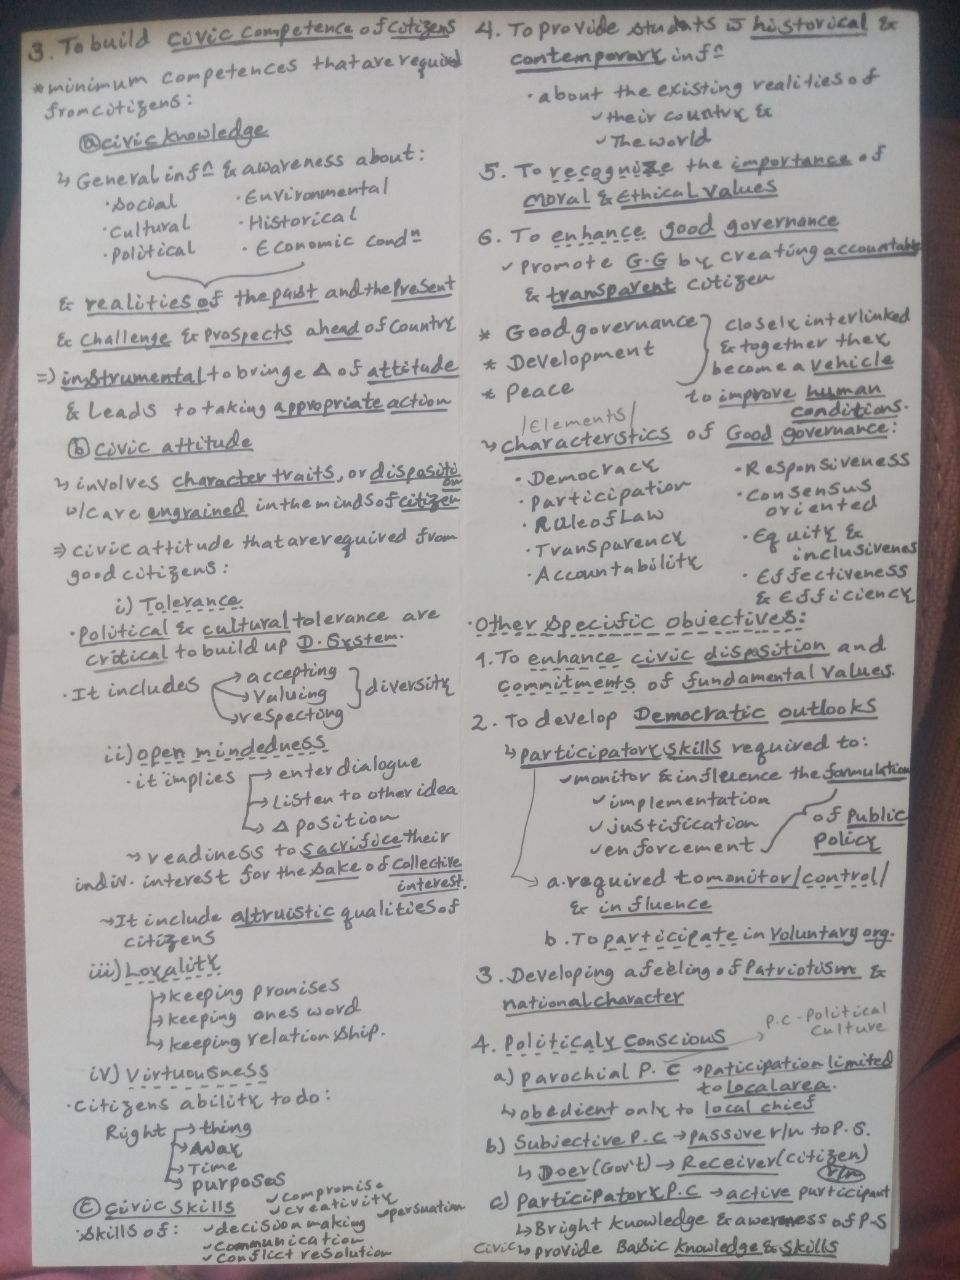 3. To build civic competence of citizens
* minimum competences that are required
from citizens:
ⓐ civic knowledge
↳ General infⁿ & awareness about:
· Social · Environmental
· Cultural · Historical
· Political · Economic condⁿ
& realities of the past and the Present
& challenge & prospects ahead of country
⇒ instrumental to bringe Δ of attitude
& Leads to taking appropriate action
ⓑ civic attitude
↳ involves character traits, or dispositi
on
w/c are engrained in the minds of citizen
⇒ civic attitude that are required from
good citizens:
i) Tolerance
· Political & cultural tolerance are
critical to build up D. System.
· It includes → accepting
→ Valuing } diversity
→ respecting
ii) open mindedness
· it implies → enter dialogue
→ Listen to other idea
→ Δ position
→ readiness to sacrifice their
indiv. interest for the sake of collective
interest.
→ It include altruistic qualities of
citizens
iii) Loyality
→ keeping promises
→ keeping ones word
→ keeping relation ship.
iv) Virtuousness
· citizens ability to do:
Right → thing
→ way
→ Time
→ purposes
ⓒ Civic Skills ✓ compromise
✓ creativity ✓ persuation
· Skills of: ✓ decision making
✓ communication
✓ conflict resolution
4. To provide students w historical &
contemporary infⁿ
· about the existing realities of
✓ their country &
✓ The world
5. To recognize the importance of
moral & Ethical Values
6. To enhance good governance
✓ Promote G.G by creating accountable
& transparent citizen
* Good governance } closely interlinked
* Development & together they
become a vehicle
* Peace to improve human
conditions.
/Elements/
↳ characteristics of Good governance:
· Democracy · Responsiveness
· Participation · Consensus
oriented
· Rule of Law
· Transparency · Equity &
inclusivenes
· Accountability · Effectiveness
& Efficiency
· Other specific objectives:
1. To enhance civic disposition and
commitments of fundamental values.
2. To develop Democratic outlooks
↳ participatory skills required to:
✓ monitor & influence the formulation
✓ implementation
✓ justification of public
✓ enforcement policy
→ a. required to monitor/control/
& influence
b. To participate in Voluntary org.
3. Developing a feeling of Patriotism &
national character
4. Politicaly conscious → P.C - Political
Culture
a) Parochial P. C → Paticipation limited
to local area.
↳ obedient only to local chief
b) Subjective P.C → passive r/n to P.S.
↳ Doer (Gov't) → Receiver (citizen)
r/n
c) Participatory P.C → active participant
↳ Bright knowledge & awereness of P-S
Civic ↳ provide Basic knowledge & skills